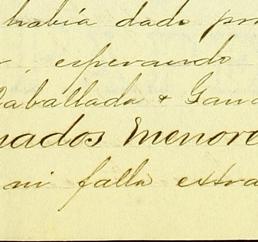 había dado po
, esperando
Caballada & Gana
nados Menore
ni falla extra